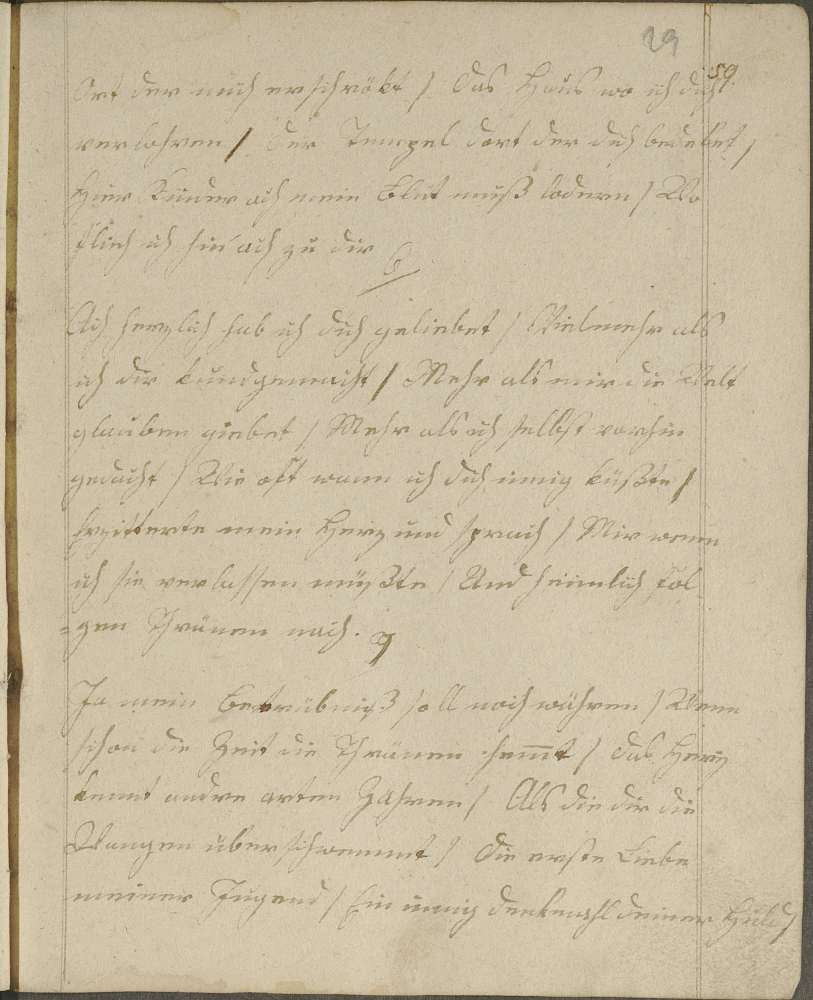 29
59.
Ort der mich erschrökt / Das Haus wo ich dich
verlohren / Der Tempel dort der dich bedeket /
Hier Kinder ach mein Blut muß lodern / Wo
flieh ich hin ach zu dir
6
Ach herzlich hab ich dich geliebet / Vielmehr als
ich dir kundgemacht / Mehr als mir die Welt
glauben giebet / Mehr als ich selbst vorhin
gedacht / Wie oft wann ich dich innig küßte /
Erzitterte mein Herz und sprach / Mir wenn
ich sie verlassen müßte / Und heimlich fol
=gen Thränen nach.
7
Ja mein Betrübniß soll noch währen / Wenn
schon die Zeit die Thränen hemmt / Das Herz
kennt andre arten Zähren / Als die dir die
Wangen überschwemmt / Die erste Liebe
meiner Jugend / Ein innig denkmahl deiner Huld /